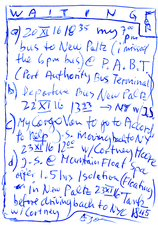 WAITING
a) 20 XII 16 1835 my 7pm
bus to New Paltz (i missed
the 6pm bus) @ P.A.B.T.
(Port Authority Bus Terminal)
b) Departure Bus New Paltz
22 XII 16 1323 → NY w/JS
c) My Cargo Van to go to Accord
to help J.S. moving back to NY
23 XII 16 1200 w/Cortney
d) J.S. @ Mountain Float Spa
after 1.5 hrs Isolation (Floating)
in New Paltz 23 XII 16 Tank
before driving back to NYC 1845
w/Cortney